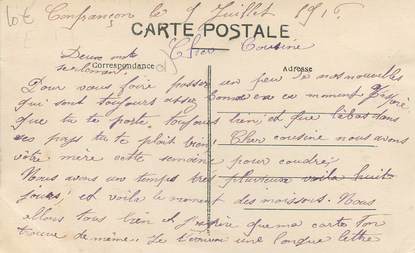 Confrançon le 9 Juillet 1916
CARTE POSTALE
Deux mots
Cher Cousine
Correspondance
Adresse
Pour vous faire passer un peu de nos nouvelles
qui sont toujours assez bonne en ce moment J'espère
que tu te porte toujours bien et que là bas dans
ses pays tu te plait bien. Cher cousine nous avons
vôtre mère cette semaine pour coudre;
Nous avons un temps tres pluvieux voila huit
jours; et voila le moment des moissons. Nous
allons tous bien et j'espère que ma carte t'on
trouve de même. Je t'écrirai une longue lettre